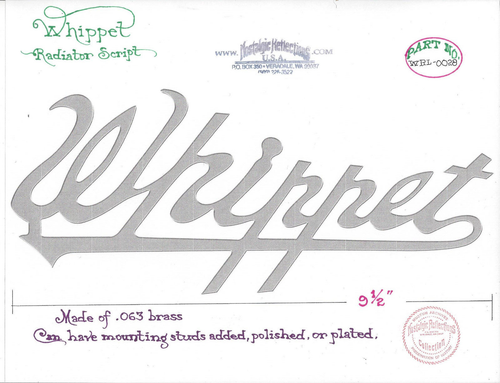 Whippet
Radiator Script
www. Nostalgic Reflections .COM
U.S.A.
P.O. BOX 350 • VERADALE, WA 99037
PART NO.
WRL-0028
Whippet
9½"
Made of .063 brass
Can have mounting studs added, polished, or plated.
Nostalgic Reflections
Collection